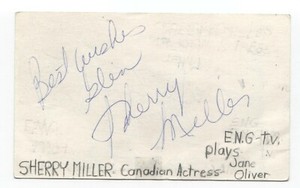 Best Wishes
Glen
Sherry
Miller
E.N.G - T.V.
plays
Jane
Oliver
SHERRY MILLER - Canadian Actress -